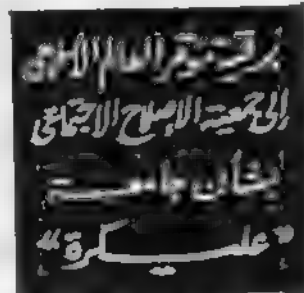 برقية مؤتمر العالم الإسلامي
إلى جمعية الإصلاح الاجتماعي
بشأن جامعة
"عليكرة"